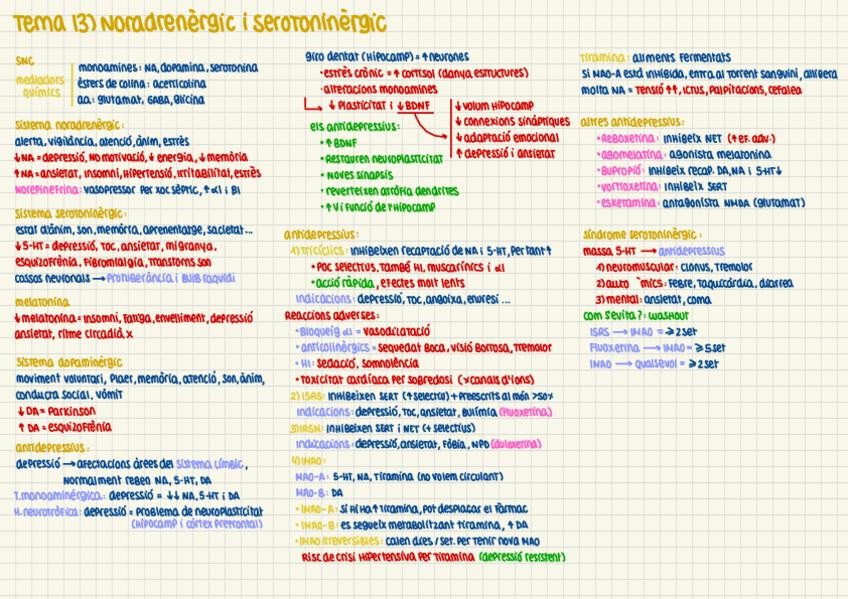 Tema 13) Noradrenèrgic i Serotoninèrgic
SNC
mediadors químics
monoamines: NA, dopamina, serotonina
èsters de colina: acetilcolina
aa: glutamat, GABA, glicina
sistema noradrenèrgic:
alerta, vigilància, atenció, ànim, estrès
↓NA = depressió, no motivació, ↓ energia, ↓ memòria
↑NA = ansietat, insomni, hipertensió, irritabilitat, estrès
norepinefrina: vasopressor per xoc sèptic, ↑α1 i B1
sistema serotoninèrgic:
estat d'ànim, son, memòria, aprenentatge, sacietat...
↓5-HT = depressió, TOC, ansietat, migranya,
esquizofrènia, fibromialgia, transtorns son
cossos neuronals → protuberància i bulb raquidi
melatonina
↓melatonina = insomni, fatiga, envelliment, depressió
ansietat, ritme circadià x
sistema dopaminèrgic
moviment voluntari, plaer, memòria, atenció, son, ànim,
conducta social, vòmit
↓ DA = Parkinson
↑ DA = esquizofrènia
antidepressius:
depressió → afectacions àrees del sistema límbic,
normalment reben NA, 5-HT, DA
T. monoaminérgica: depressió = ↓↓ NA, 5-HT i DA
H. neurotròfica: depressió = problema de neuroplasticitat
(hipocamp i còrtex prefrontal)
giro dentat (hipocamp) = ↑ neurones
• estrès crònic = ↑ cortisol (danya estructures)
• alteracions monoamines
↓ plasticitat i ↓ BDNF
↓ volum hipocamp
↓ connexions sinàptiques
↓ adaptació emocional
↑ depressió i ansietat
els antidepressius:
• ↑ BDNF
• restauren neuroplasticitat
• noves sinapsis
• reverteixen atròfia dendrites
• ↑ V i funció de l'hipocamp
antidepressius:
1) tricíclics: inhibeixen recaptació de NA i 5-HT, per tant ↑
• poc selectius, també H1, muscarínics i α1
• acció ràpida, efectes molt lents
indicacions: depressió, TOC, angoixa, enuresi ...
Reaccions adverses:
• Bloqueig α1 = vasodilatació
• anticolinèrgics = sequedat boca, visió borrosa, tremolor
• H1: sedació, somnolència
• toxicitat cardíaca per sobredosi (x canals d'ions)
2) ISRS: inhibeixen SERT (↑ selectiu) + preescrits al món >50%
indicacions: depressió, TOC, ansietat, bulímia (fluoxetina)
3) IRSN: inhibeixen SERT i NET (+ selectius)
indicacions: depressió, ansietat, fòbia, NPD (duloxetina)
4) IMAO:
MAO-A: 5-HT, NA, tiramina (no volem circulant)
MAO-B: DA
• IMAO-A: si hi ha ↑ tiramina, pot desplaçar el fàrmac
• IMAO-B: es segueix metabolitzant tiramina, ↑ DA
• IMAO irreversibles: calen dies / set. per tenir nova MAO
Risc de crisi hipertensiva per tiramina (depressió resistent)
Tiramina: aliments fermentats
si MAO-A està inhibida, entra al torrent sanguini, allibera
molta NA = tensió ↑↑, ictus, palpitacions, cefalea
altres antidepressius:
• Reboxetina: inhibeix NET (↑ ef. adv.)
• agomelatina: agonista melatonina
• Bupropió: inhibeix recap. DA, NA i 5-HT↓
• vortioxetina: inhibeix SERT
• esketamina: antagonista NMDA (glutamat)
síndrome serotoninèrgic:
massa 5-HT → antidepressius
1) neuromuscular: clonus, tremolor
2) autonòmics: febre, taquicàrdia, diarrea
3) mental: ansietat, coma
com s'evita?: washout
ISRS → IMAO = ≥ 2 set
Fluoxetina → IMAO = ≥ 5 set
IMAO → qualsevol = ≥ 2 set